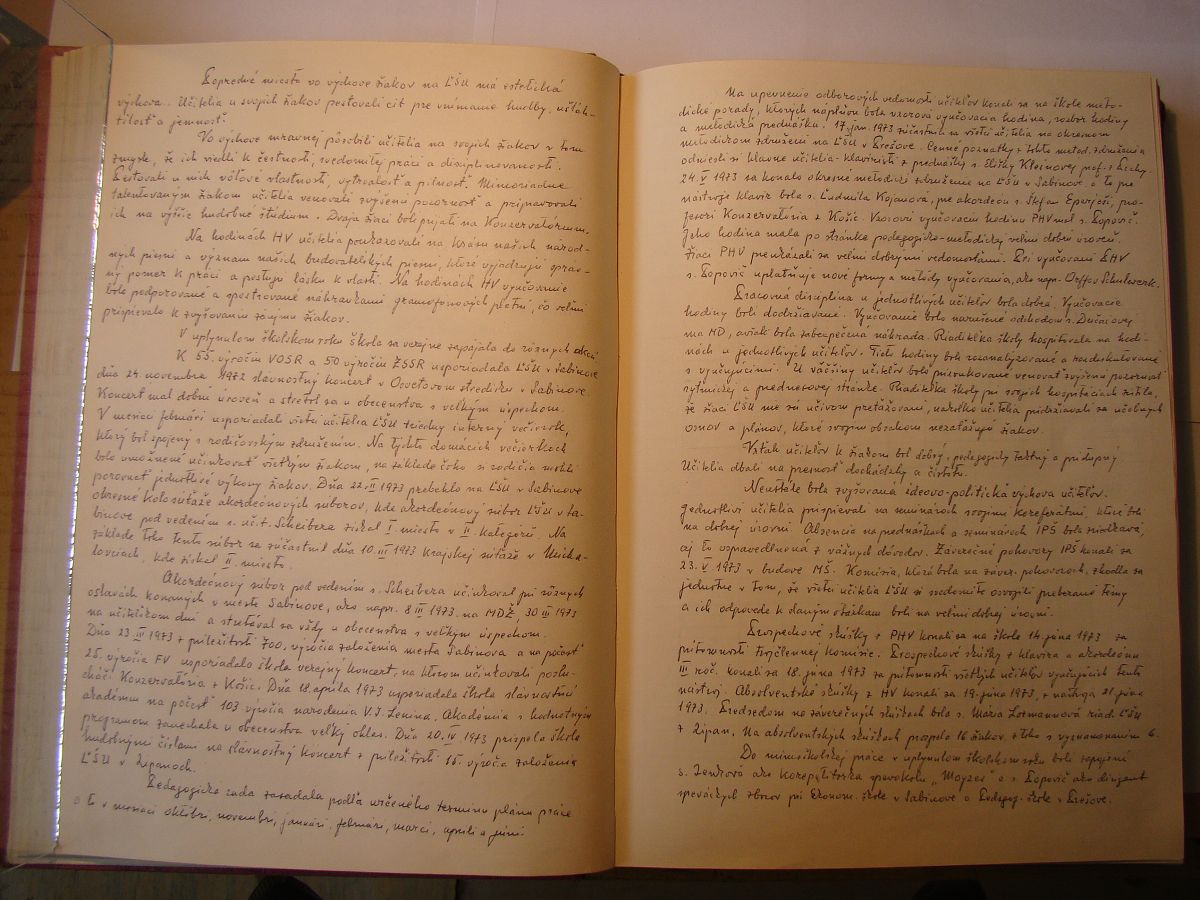 Popredné miesto vo výchove žiakov na ĽŠU má estetická
výchova. Učitelia u svojich žiakov pestovali cit pre vnímanie hudby, ušľach-
tilosť a jemnosť.
Vo výchove mravnej pôsobili učitelia na svojich žiakov v tom
zmysle, že ich viedli k čestnosti, svedomitej práci a disciplinovanosti.
Pestovali u nich vôľové vlastnosti, vytrvalosť a pilnosť. Mimoriadne
talentovaným žiakom učitelia venovali zvýšenú pozornosť a pripravovali
ich na vyššie hudobné štúdium. Dvaja žiaci boli prijatí na Konzervatórium.
Na hodinách HV učitelia poukazovali na krásu našich národ-
ných piesní a význam našich budovateľských piesní, ktoré vyjadrujú správ-
ny pomer k práci a pestujú lásku k vlasti. Na hodinách HV vyučovanie
bolo podporované a spestrované nahrávkami gramofonových platní, čo veľmi
prispievalo k zvyšovaniu záujmu žiakov.
V uplynulom školskom roku škola sa verejne zapájala do rôznych akcií
K 55. výročiu VOSR a 50 výročiu ZSSR usporiadala ĽŠU v Sabinove
dňa 24. novembra 1972 slávnostný koncert v Osvetovom stredisku v Sabinove.
Koncert mal dobrú úroveň a stretol sa u obecenstva s veľkým úspechom.
V mesiaci februári usporiadali všetci učitelia ĽŠU triedny interný večierok,
ktorý bol spojený s rodičovským združením. Na týchto domácich večierkoch
bolo umožnené účinkovať všetkým žiakom, na základe čoho si rodičia mohli
porovnať jednotlivé výkony žiakov. Dňa 22. II 1973 prebehlo na ĽŠU v Sabinove
okresné kolo súťaže akordeónových súborov, kde akordeónový súbor ĽŠU v Sa-
binove pod vedením s. uč. T. Scheibera získal I. miesto v II. kategórii. Na
základe toho tento súbor sa zúčastnil dňa 10. III 1973 krajskej súťaže v Micha-
lovciach, kde získal II. miesto.
Akordeónový súbor pod vedením s. Scheibera účinkoval pri rôznych
oslavách konaných v meste Sabinove, ako napr. 8 III 1973 na MDŽ, 30 III 1973
na učiteľskom dni a stretával sa vždy u obecenstva s veľkým úspechom.
Dňa 23. III 1973 z príležitosti 700. výročia založenia mesta Sabinova a na počesť
25. výročia FV usporiadala škola verejný koncert, na ktorom účinkovali poslu-
cháči Konzervatória z Košíc. Dňa 18. apríla 1973 usporiadala škola slávnostnú
akadémiu na počesť 103 výročia narodenia V. I. Lenina. Akadémia s hodnotným
programom zanechala u obecenstva veľký ohlas. Dňa 20. IV 1973 prispela škola
hudobnými číslami na slávnostný koncert z príležitosti 15. výročia založenia
ĽŠU v Lipanoch.
Pedagogická rada zasadala podľa určeného termínu plánu práce
a to v mesiaci októbri, novembri, januári, februári, marci, apríli a júni
Na upevnenie odborových vedomostí učiteľov konali sa na škole meto-
dické porady, ktorých náplňou bola vzorová vyučovacia hodina, rozbor hodiny
a metodická prednáška. 17. jan. 1973 zúčastnili sa všetci učitelia na okresnom
metodickom združení na ĽŠU v Prešove. Cenné poznatky z tohto metod. združenia
odniesli si hlavne učitelia-klaviristi z prednášky s. Elišky Kleinovej prof. z Prahy.
24. V 1973 sa konalo okresné metodické združenie na ĽŠU v Sabinove, a to pre
nástroje klavír bola s. Ľudmila Kojanova, pre akordeon s. Štefan Eperješi, pro-
fesori Konzervatória z Košíc. Vzorovú vyučovaciu hodinu PHV mal s. Popovič.
Jeho hodina mala po stránke pedagogicko-metodickej veľmi dobrú úroveň.
Žiaci PHV preukázali sa veľmi dobrými vedomosťami. Pri vyučovaní PHV
s. Popovič uplatňuje nové formy a metódy vyučovania, ako napr. Orffov Schulwerk.
Pracovná disciplina u jednotlivých učiteľov bola dobrá. Vyučovacie
hodiny boli dodržiavané. Vyučovanie bolo narušené odchodom s. Dučaiovej
na MD, avšak bola zabezpečená náhrada. Riaditeľka školy hospitovala na hodi-
nách u jednotlivých učiteľov. Tieto hodiny boli rozanalyzované a rozdiskutované
s vyučujúcimi. U väčšiny učiteľov bolo poukazované venovať zvýšenú pozornosť
rytmickej a prednesovej stránke. Riaditeľka školy pri svojich hospitáciách zistila,
že žiaci ĽŠU nie sú učivom preťažovaní, nakoľko učitelia pridržiavali sa učebných
osnov a plánov, ktoré svojim obsahom nezaťažujú žiakov.
Vzťah učiteľov k žiakom bol dobrý, pedagogicky taktný a prístupný
Učitelia dbali na presnosť dochádzky a čistotu.
Neustále bola zvyšovaná ideovo-politická výchova učiteľov.
Jednotliví učitelia prispievali na seminároch svojimi koreferátmi, ktoré boli
na dobrej úrovni. Absencia na prednáškach a seminároch IPŠ bola zriedkavá,
aj to ospravedlnená z vážnych dôvodov. Záverečné pohovory IPŠ konali sa
23. V 1973 v budove MŠ. Komisia, ktorá bola na záver. pohovoroch, zhodla sa
jednotne v tom, že všetci učitelia ĽŠU si svedomite osvojili preberané témy
a ich odpovede k daným otázkam boli na veľmi dobrej úrovni.
Postupové skúšky z PHV konali sa na škole 14. júna 1973 za
prítomnosti trojčlennej komisie. Postupové skúšky z klavíra a akordeónu
III roč. konali sa 18. júna 1973 za prítomnosti všetkých učiteľov vyučujúcich tento
nástroj. Absolventské skúšky z HV konali sa 19. júna 1973, z nástroja 21. júna
1973. Predsedom na záverečných skúškach bola s. Mária Lotmannová riad. ĽŠU
z Lipan. Na absolventských skúškach prospelo 16 žiakov, z toho s vyznamenaním 6.
Do mimoškolskej práce v uplynulom školskom roku boli zapojení
s. Zenková ako korepetítorka spevokolu „Moyzes" a s. Popovič ako dirigent
speváckych zborov pri Ekonom. škole v Sabinove a Pedagog. škole v Prešove.